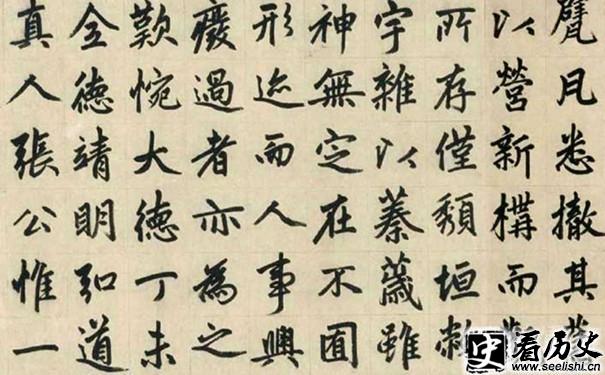 凡悉撤其
以營新構而
所存僅頹垣
宇雜以蓁薉雖
神無定在不囿
形迹而人事興
廢過者亦為之
歎惋大德丁未
全德靖明弘道
真人張公惟一
史
看历史
www.seelishi.cn